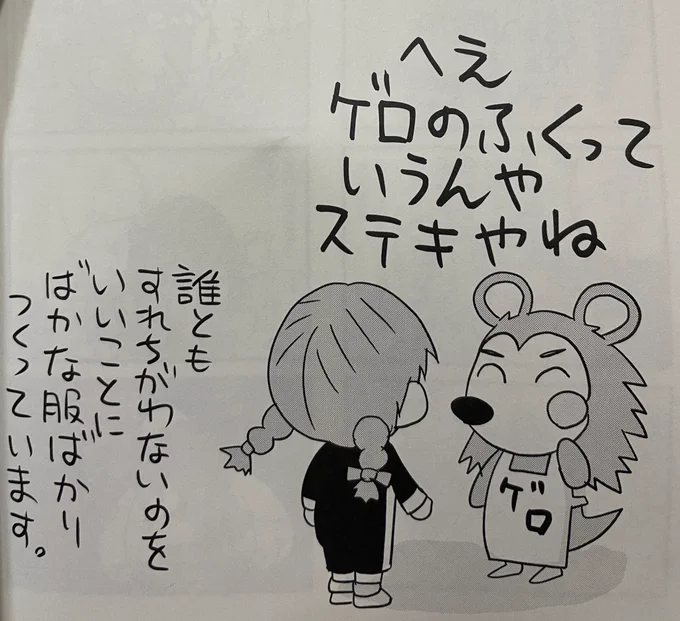 へえ
ゲロのふくって
いうんや
ステキやね
ゲロ
誰とも
すれちがわないのを
いいことに
ばかな服ばかり
つくっています。